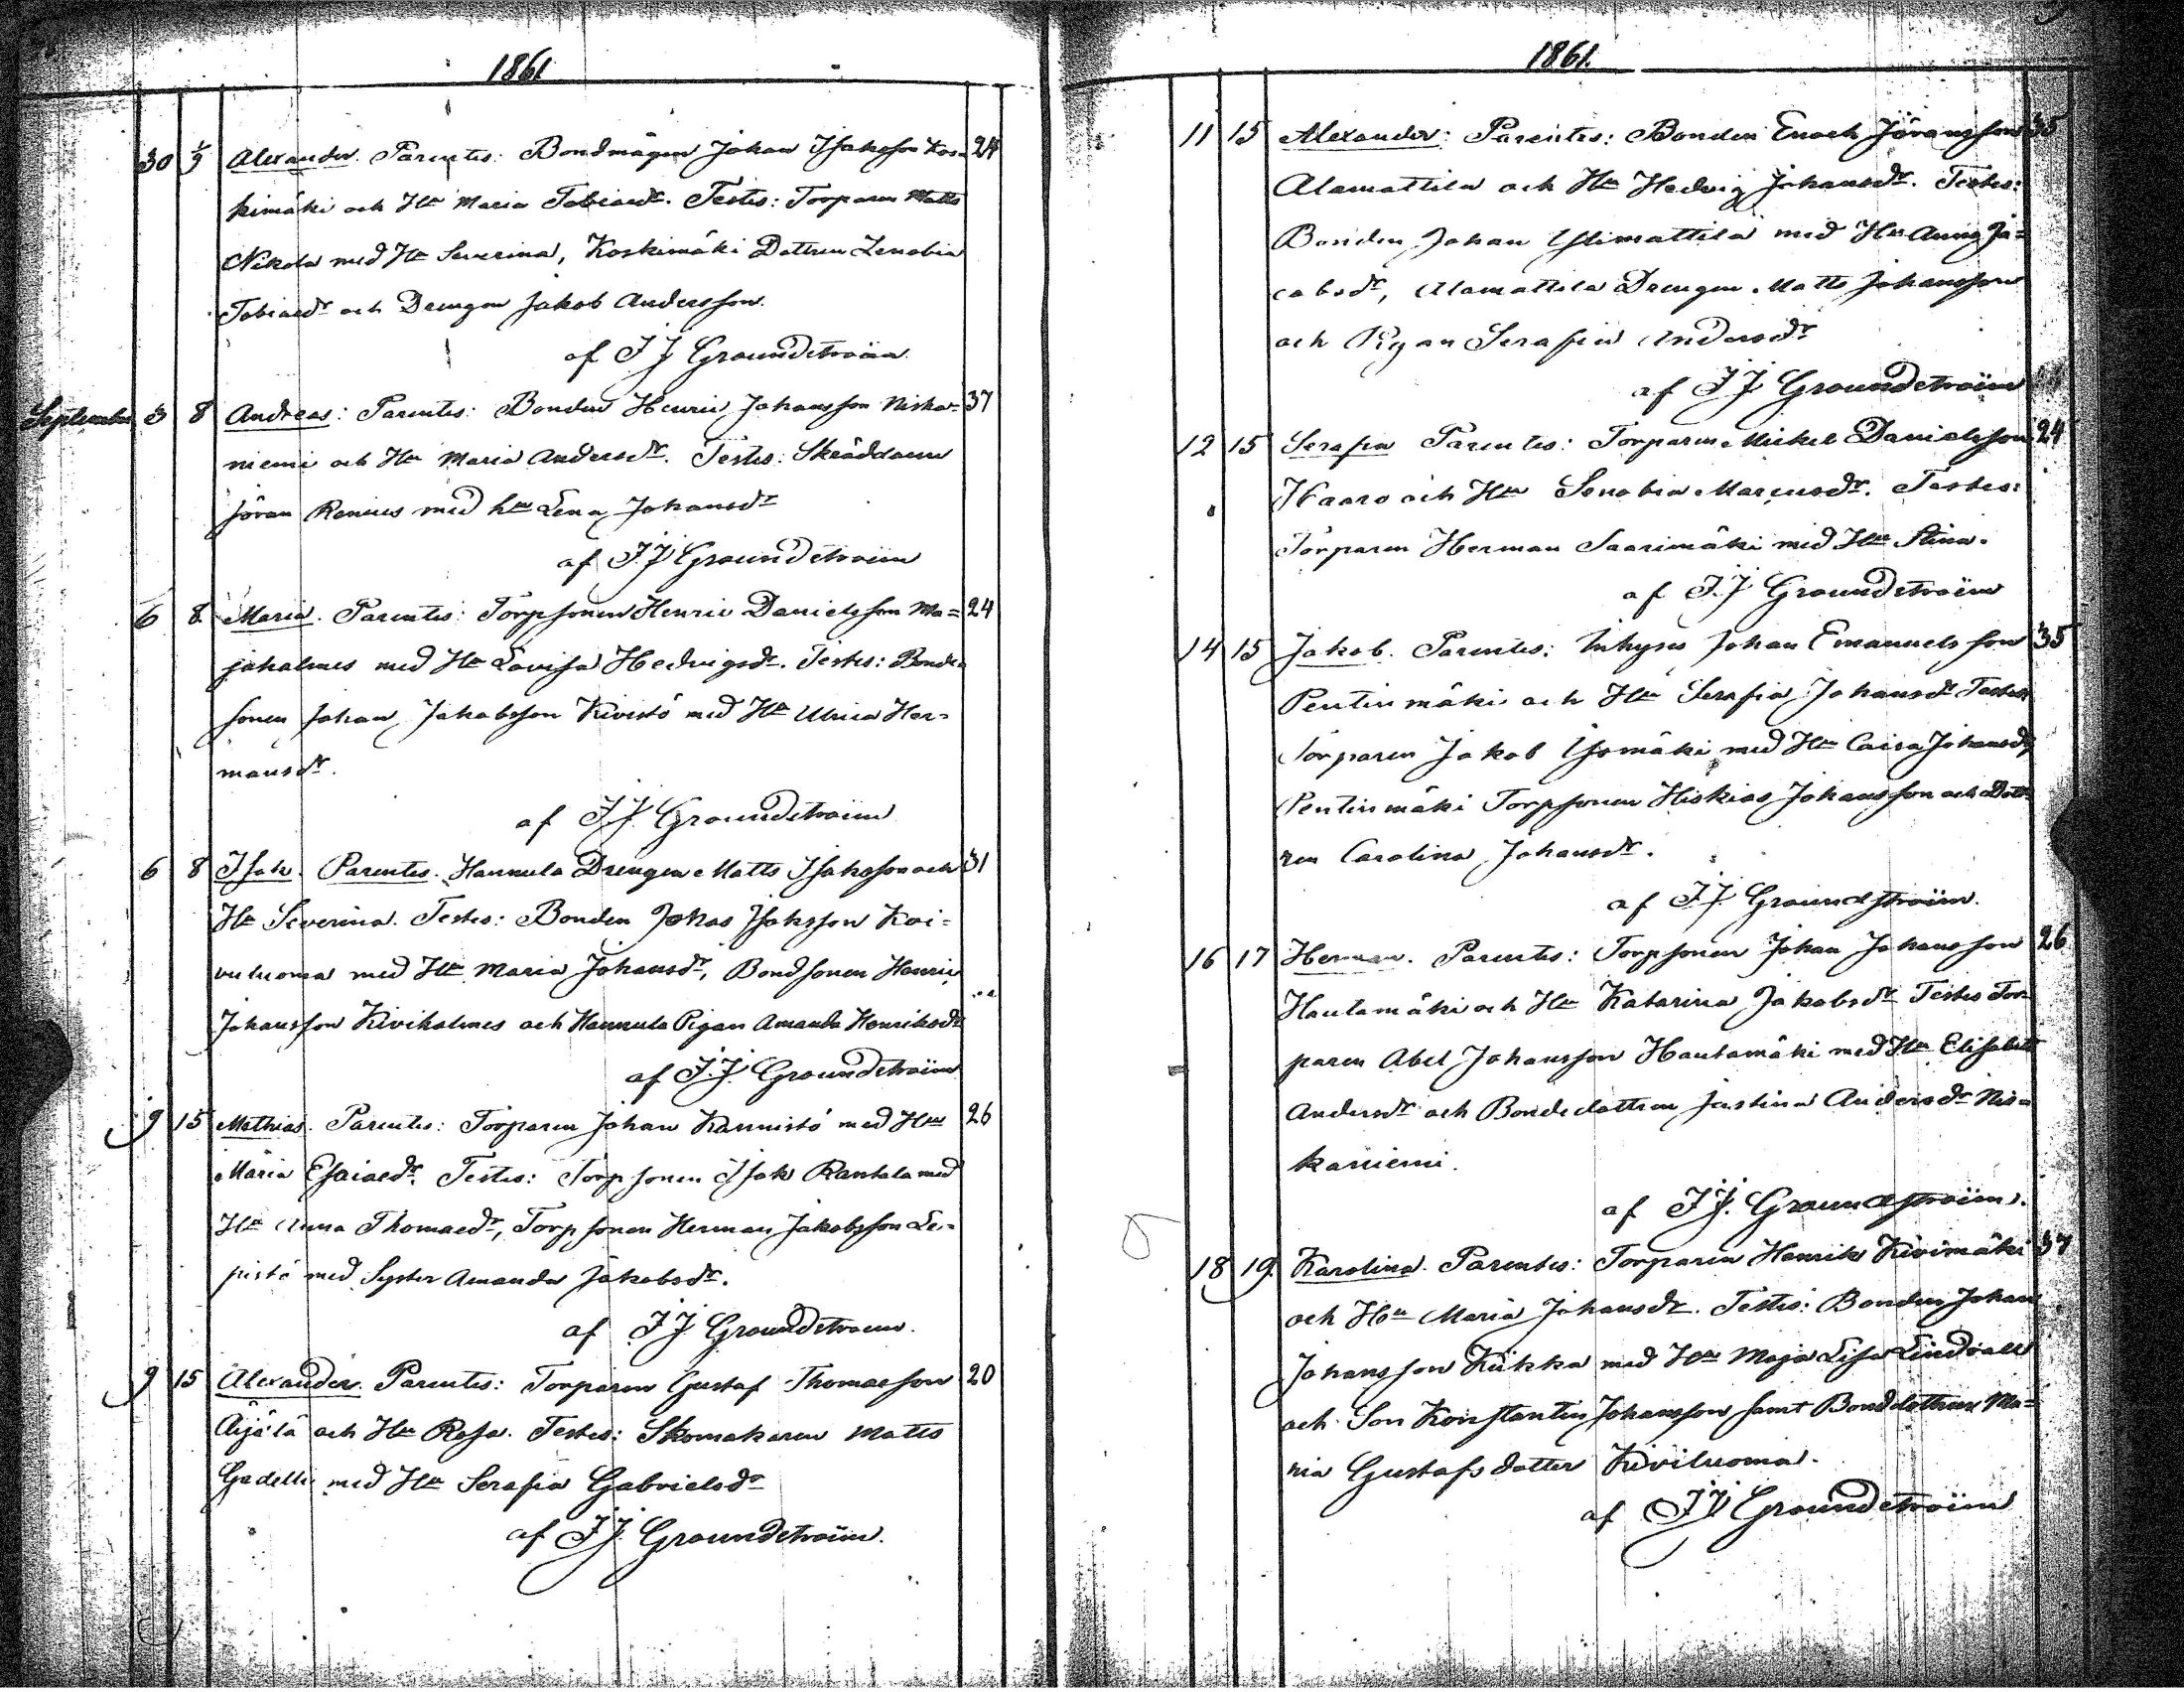 1861
30 1/9 Alexander. Parentes: Bondmågen Johan Isaksson Kos= 24
kimäki och Hu Maria Tobiaedr. Testes: Torparen Matts
Nikola med Hu Severina, Koskimäki Dottren Zenobia
Tobiaedr och Drengen Jakob Andersson.
af J J Groundstroëm.
September 3 8 Andreas: Parentes: Bonden Henric Johansson Niska= 37
niemi och Hu Maria Andersdr. Testes: Skräddaren
Jöran Renius med hu Lena Johansdr
af J. J Groundstroëm
6 8 Maria. Parentes: Torpsonen Henric Danielsson Ma= 24
jaholmes med Hu Lovisa Hedvigsdr. Testes: Bonde
sonen Johan Jakobsson Kivistö med Hu Ulrica Her=
mansdr.
af J J. Groundstroëm
6 8 Isak. Parentes. Hannula Drengen Matts Isaksson och 31
Hu Severina. Testes: Bonden Johas Isaksson Koi=
vuluoma med Hu Maria Johansdr, Bondsonen Henric
Johansson Kiviholmes och Hannula Pigan Amanda Henriksdr
af J. J. Groundstroëm
9 15 Mathias. Parentes: Torparen Johan Kannistö med Hu 26
Maria Esaiaedr. Testes: Torpsonen Isak Rantala med
Hu Anna Thomaedr, Torpsonen Herman Jakobsson Le=
pistö med Syster Amanda Jakobsdr.
af J J. Groundstroëm.
9 15 Alexander. Parentes: Torparen Gustaf Thomasson 20
Äijälä och Hu Rosa. Testes: Skomakaren Matts
med Hu Serafia Gabrielsdr
af J J. Groundstroëm.
1861.
11 15 Alexander: Parentes: Bonden Enoch Jöransson 35
Alamattila och Hu Hedvig Johansdr. Testes:
Bonden Johan Ylimattila med Hu Anna Ja=
cobsdr, Alamattila Drengen Matts Johansson
och Pigan Serafia Andersdr
af J J Groundstroëm
12 15 Serafia Parentes: Torparen Mickel Danielsson 24
Haaro och Hu Senobia Marcusdr. Testes:
Torparen Herman Saarimäki med Hu Stina.
af J. J Groundstroëm
14 15 Jakob. Parentes: Inhyses Johan Emanuelsson 35
Pentinmäki och Hu Serafia Johansdr Testes
Torparen Jakob Isomäki med Hu Caisa Johansdr
Pentinmäki Torpsonen Hiskias Johansson och Dott=
ren Carolina Johansdr.
af J J. Groundstroëm.
16 17 Herman. Parentes: Torpsonen Johan Johansson 26
Hautamäki och Hu Katarina Jakobsdr Testes Tor=
paren Abel Johansson Hautamäki med Hu Elisabet
Andersdr och Bondedottren Justina Andersdr Nis=
kaniemi.
af J J. Groundstroëm.
18 19. Karolina. Parentes: Torparen Henrik Kivimäki 37
och Hu Maria Johansdr. Testes: Bonden Johan
Johansson Kiikka med Hu Maja Lisa Lindvall
och Son Konstantin Johansson samt Bonddottren Ma=
ria Gustafsdotter Kiviluoma.
af J J Groundstroëm